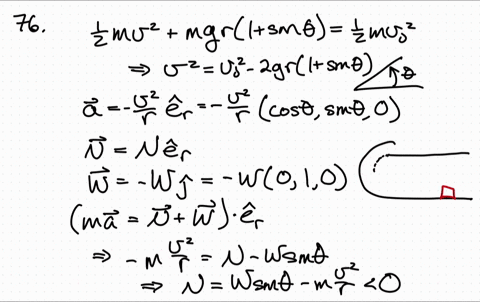 76.
½mv² + mgr(1+sinθ) = ½mv₀²
⇒ v² = v₀² - 2gr(1+sinθ)
θ
a⃗ = -v²/r ê_r = -v²/r (cosθ, sinθ, 0)
N⃗ = Nê_r
W⃗ = -Wĵ = -W(0,1,0)
(ma⃗ = N⃗ + W⃗)·ê_r
⇒ -m v²/r = N - Wsinθ
⇒ N = Wsinθ - m v²/r < 0